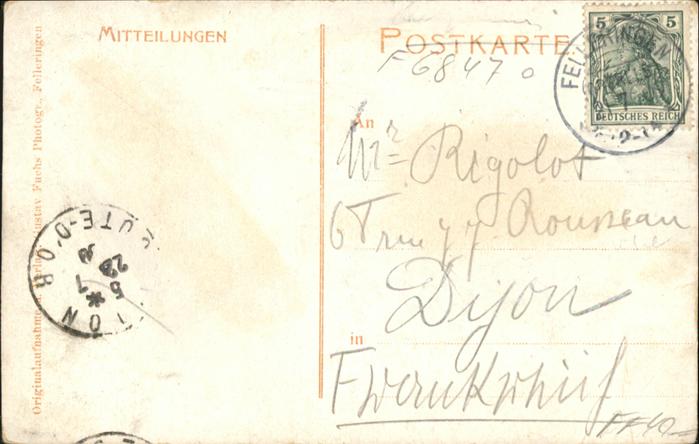 MITTEILUNGEN
POSTKARTE
F 68470
5 5
DEUTSCHES REICH
FELLERINGEN
An
Mr Rigolot
6 rue JJ Rousseau
Dijon
in
Frankreich
FF40
CÔTE-D'OR
Originalaufnahme Gustav Fuchs Photogr., Felleringen